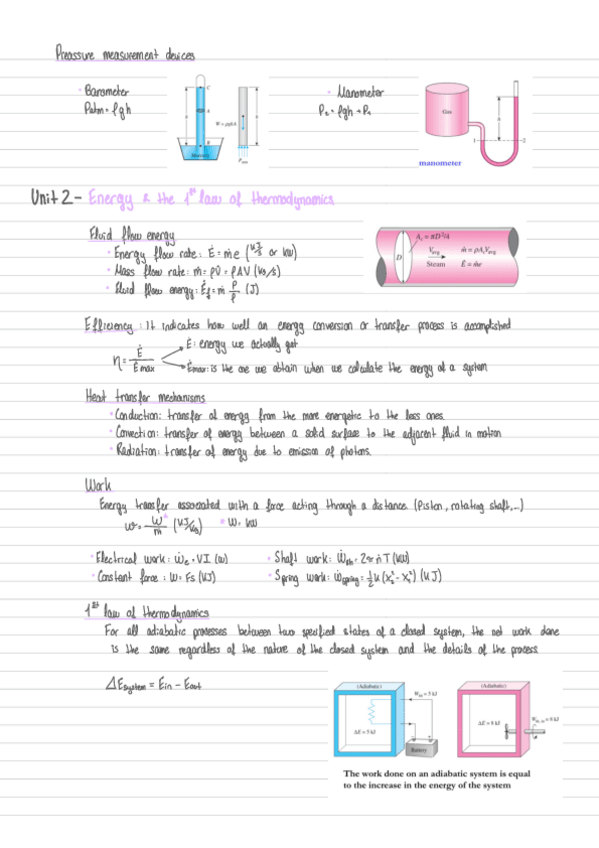 Preassure measurement devices
· Barometer
Patm = ρgh
C
h
A
h
W = ρghA
B
Mercury
Patm
· Manometer
P2 = ρgh + P1
Gas
h
1
2
manometer
Unit 2 - Energy & the 1st law of thermodynamics
Fluid flow energy
· Energy flow rate: Ė = ṁe (KJ/s or kW)
· Mass flow rate: ṁ = ρV̇ = ρAV (KG/s)
· Fluid flow energy: Ėf = ṁ P/ρ (J)
Ac = πD²/4
D
Vavg
Steam
ṁ = ρAcVavg
Ė = ṁe
Efficiency: It indicates how well an energy conversion or transfer process is accomplished
η = Ė / Ėmax
Ė: energy we actually get
Ėmax: is the one we obtain when we calculate the energy of a system
Heat transfer mechanisms
· Conduction: transfer of energy from the more energetic to the less ones.
· Convection: transfer of energy between a solid surface to the adjacent fluid in motion
· Radiation: transfer of energy due to emission of photons.
Work
Energy transfer associated with a force acting through a distance. (Piston, rotating shaft,...)
w = W/m (KJ/KG) * Ẇ = kW
· Electrical work: Ẇe = VI (W)
· Shaft work: Ẇsh = 2πṅT (KW)
· Constant force: W = Fs (KJ)
· Spring work: Wspring = ½ k (x₂² - x₁²) (KJ)
1st law of thermodynamics
For all adiabatic processes between two specified states of a closed system, the net work done
is the same regardless of the nature of the closed system and the details of the process
ΔEsystem = Ein - Eout
(Adiabatic)
Win = 5 kJ
ΔE = 5 kJ
Battery
(Adiabatic)
ΔE = 8 kJ
Wsh, in = 8 kJ
The work done on an adiabatic system is equal
to the increase in the energy of the system